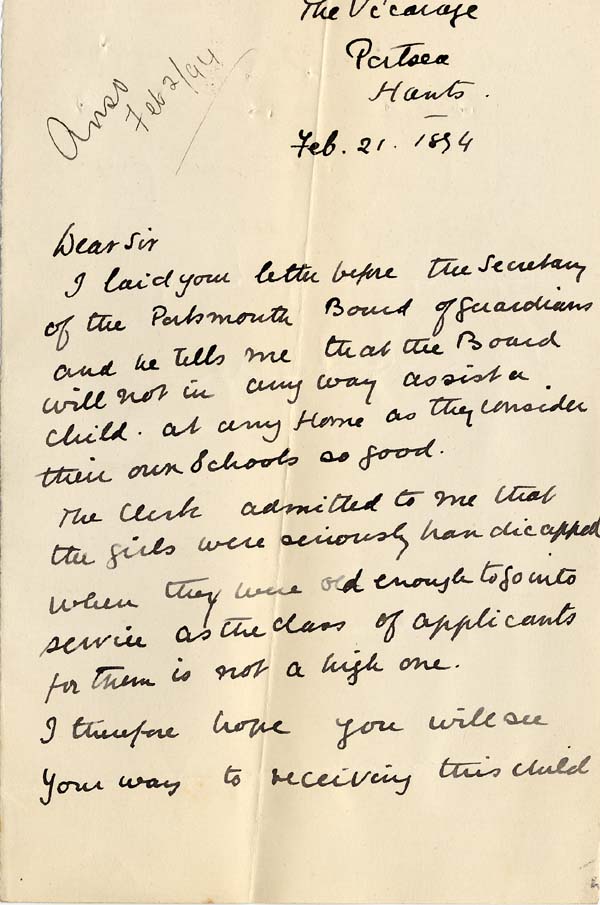 The Vicarage
Portsea
Hants.
Feb. 21. 1894
Feb 2/94
Dear Sir
I laid your letter before the Secretary
of the Portsmouth Board of Guardians
and he tells me that the Board
will not in any way assist a
child. at any Home as they consider
their own Schools so good.
The Clerk admitted to me that
the girls were seriously handicapped
when they were old enough to go into
service as the class of applicants
for them is not a high one.
I therefore hope you will see
your way to receiving this child